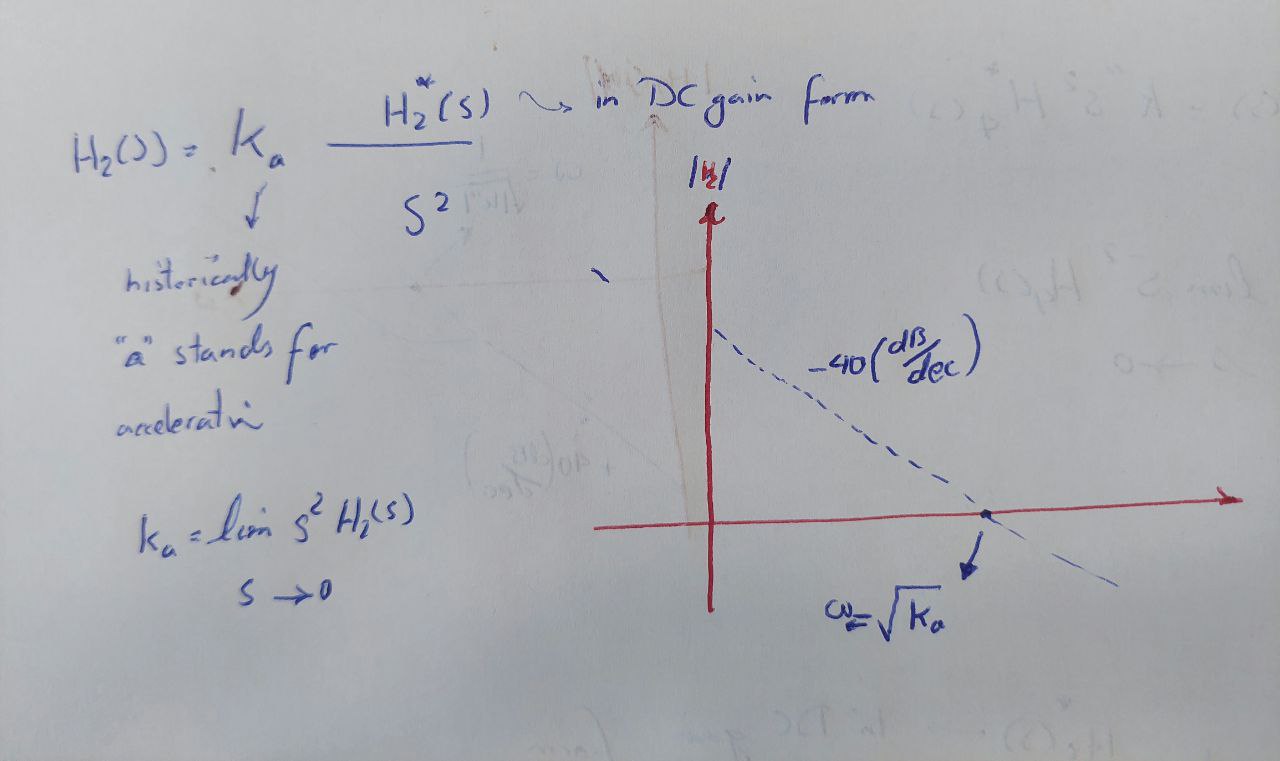 H₂(s) = kₐ H₂*(s) ⤳ in DC gain form
S²
↓
historically
"a" stands for
acceleratin
kₐ = lim s² H₂(s)
s → 0
|H₂|
-40 (dB/dec)
ω = √kₐ